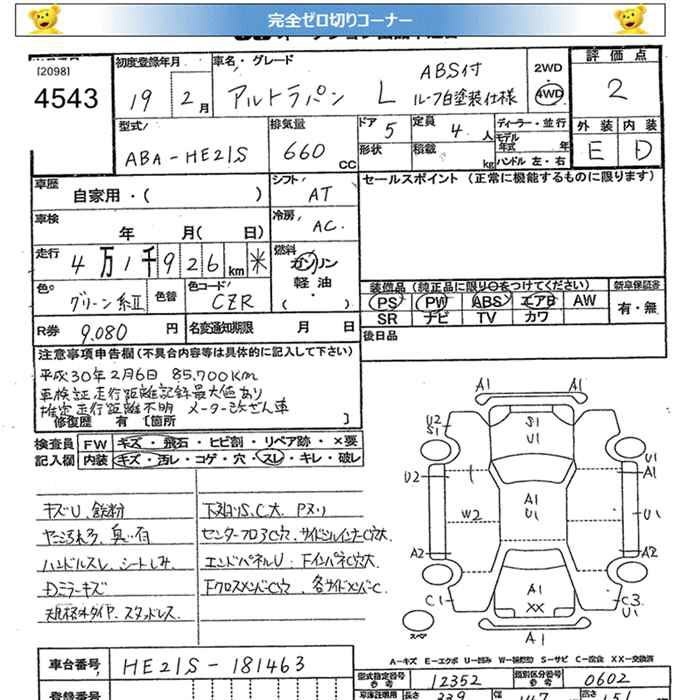 完全ゼロ切りコーナー
[2098]
4543
初度登録年月
19年 2月
車名・グレード
アルトラパン L
ABS付
ルーフ白塗装仕様
2WD
4WD
評価点
2
外装 内装
E D
型式
ABA-HE21S
排気量
660 CC
ドア 5
定員 4 人
形状
積載 kg
ディーラー・並行
モデル年式 年
ハンドル 左・右
車歴
自家用・( )
シフト
AT
セールスポイント (正常に機能するものに限ります)
車検
年 月( 日)
冷房
AC
走行
4万1千926km *
燃料
ガソリン
軽油
( ・ )
色
グリーン系Ⅱ
色替
色コード
CZR
装備品 (純正品に限り○をつけてください)
PS PW ABS エアB AW
SR ナビ TV カワ
新車保証書
有・無
R券 9.080 円
名変通知期限 月 日
後日品
注意事項申告欄(不具合内容等は具体的に記入して下さい)
平成30年2月6日 85,700Km
車検証走行距離記録最大値あり
推定走行距離不明 メーター改ざん車
修復歴 有 [箇所 ]
検査員記入欄
FW キズ・飛石・ヒビ割・リペア跡・×要
内装 キズ・汚レ・コゲ・穴・スレ・キレ・破レ
キズU、鉄粉
ハンドルスレ、シートしみ
Dミラーキズ
規格外タイヤ、スタッドレス
下廻りS,C大 Pヌリ
センターフロアC穴、サイドシルインナーC穴大
エンドパネルU FインパネC穴大
FクロスメンバーC穴 各サイドメンバーC
A1 A1
U2 S1
S1 U1
U1 A1
U2
A1 U1
W2
U1
A2 A2
C1
A1 XX
C3 U1
A1
スペア
A－キズ E－エクボ U－凹み W－補修跡 S－サビ C－腐食 XX－交換済
車台番号 HE21S-181463
型式指定番号 参考 12352
類別区分番号 参考 0602
登録番号
長さ 339